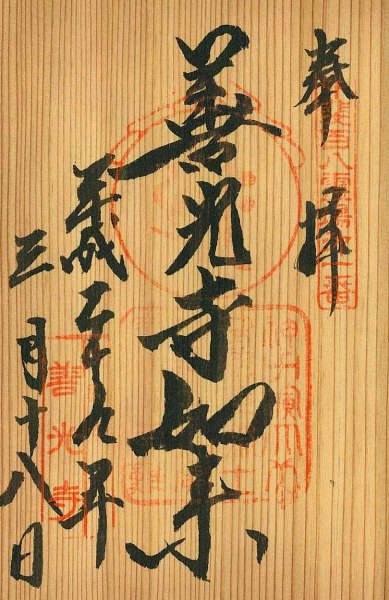 奉拝
善光寺如来
平成二十九年
三月十八日
善光寺